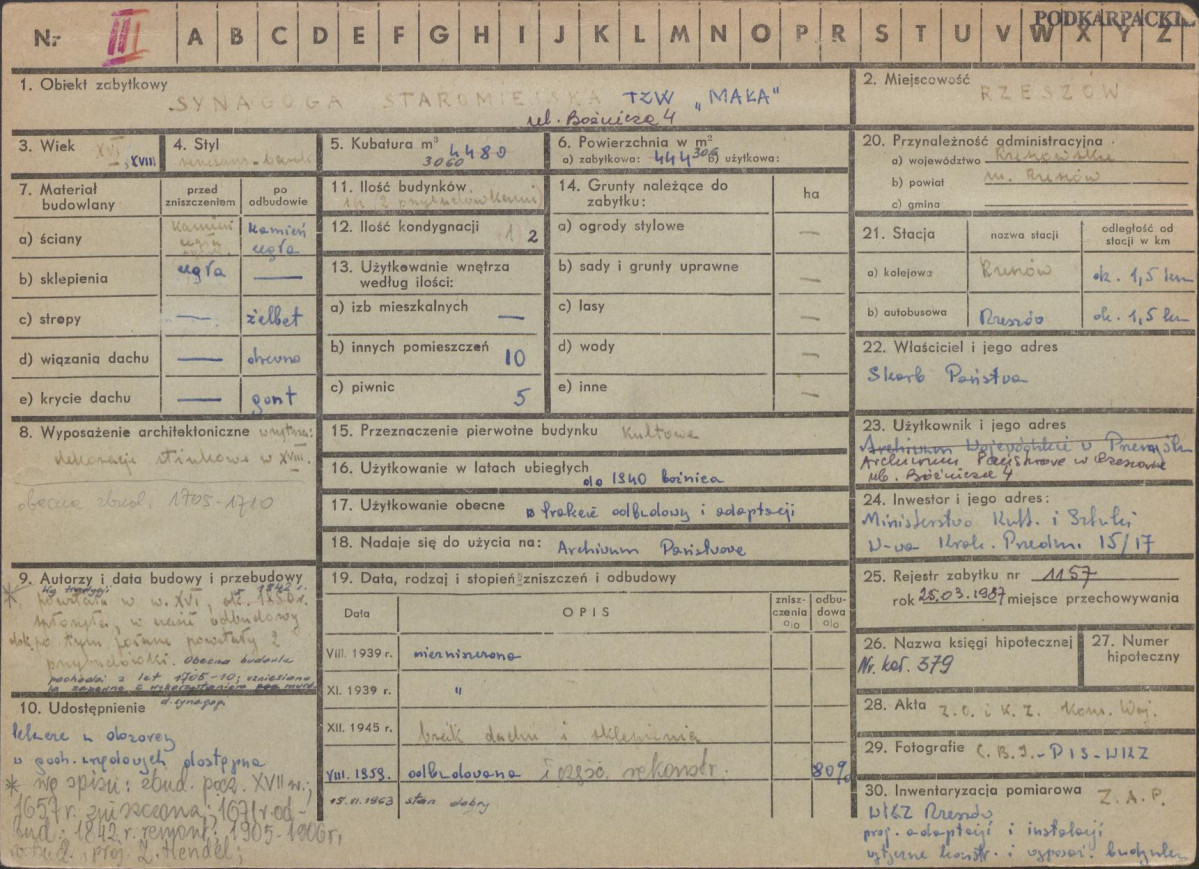 PODKARPACKI
Nr III A B C D E F G H I J K L M N O P R S T U V W X Y Z
1. Obiekt zabytkowy
SYNAGOGA STAROMIEJSKA TZW „MAŁA"
ul. Bożnicza 4
2. Miejscowość
RZESZÓW
3. Wiek
XVI, XVIII
4. Styl
renesans - barok
5. Kubatura m³
4480
3060
6. Powierzchnia w m²
a) zabytkowa: 444 306 b) użytkowa:
20. Przynależność administracyjna
a) województwo Rzeszowskie
b) powiat m. Rzeszów
c) gmina
7. Materiał budowlany
przed zniszczeniem
po odbudowie
a) ściany kamień cegła kamień cegła
b) sklepienia cegła —
c) stropy — żelbet
d) wiązania dachu — drewno
e) krycie dachu — gont
11. Ilość budynków
1 (z przybudówkami)
12. Ilość kondygnacji (1) 2
13. Użytkowanie wnętrza według ilości:
a) izb mieszkalnych —
b) innych pomieszczeń 10
c) piwnic 5
14. Grunty należące do zabytku:
ha
a) ogrody stylowe —
b) sady i grunty uprawne —
c) lasy —
d) wody —
e) inne —
21. Stacja
nazwa stacji
odległość od stacji w km
a) kolejowa Rzeszów ok. 1,5 km
b) autobusowa Rzeszów ok. 1,5 km
22. Właściciel i jego adres
Skarb Państwa
8. Wyposażenie architektoniczne wnętrza:
dekoracje stiukowe w XVIII.
obecna zbud. 1705-1710
15. Przeznaczenie pierwotne budynku kultowe
16. Użytkowanie w latach ubiegłych
do 1940 bożnica
17. Użytkowanie obecne w trakcie odbudowy i adaptacji
18. Nadaje się do użycia na: Archiwum Państwowe
23. Użytkownik i jego adres
Archiwum Wojewódzkie w Przemyślu
Archiwum Państwowe w Rzeszowie
ul. Bożnicza 4
24. Inwestor i jego adres:
Ministerstwo Kult. i Sztuki
W-wa Krak. Przedm. 15/17
9. Autorzy i data budowy i przebudowy
Wg tradycji 1842 r.
powstała w w. XVI, ok.
spłonęła, w czasie odbudowy
po tym pożarze powstały 2
przybudówki. Obecna budowla
pochodzi z lat 1705-10; wzniesiona
d. synagogi
19. Data, rodzaj i stopień zniszczeń i odbudowy
Data
OPIS
znisz-czenia %
odbu-dowa %
VIII. 1939 r. niezniszczona
XI. 1939 r. "
XII. 1945 r. brak dachu i sklepienia
VIII. 1959. odbudowana i częśc. rekonstr. 80%
15.VI.1963 stan dobry
25. Rejestr zabytku nr 1157
rok 25.03.1987 miejsce przechowywania
26. Nazwa księgi hipotecznej
Nr. kat. 379
27. Numer hipoteczny
10. Udostępnienie
w godz. urzędowych dostępna
* wg spisu: zbud. pocz. XVII w.,
1657 r. zniszczona; 1671 r. od-
bud.; 1842 r. remont; 1905-1906 r.,
proj. Z. Hendel;
28. Akta Z.O. i K.Z. Kons. Woj.
29. Fotografie C.B.I. - PIS - WKZ
30. Inwentaryzacja pomiarowa Z.A.P.
WKZ Rzeszów
proj. adaptacji i instalacji
wytyczne konstr. i wyposaż. budynku